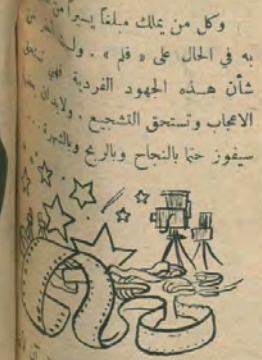 وكل من يملك مبلغاً يسيراً من
به في الحال على « فلم » . تستحق
شأن هــذه الجهود الفردية فهي
الاعجاب وتستحق التشجيع . ولابد ان
سيفوز حتما بالنجاح وبالربح وبالشهرة...